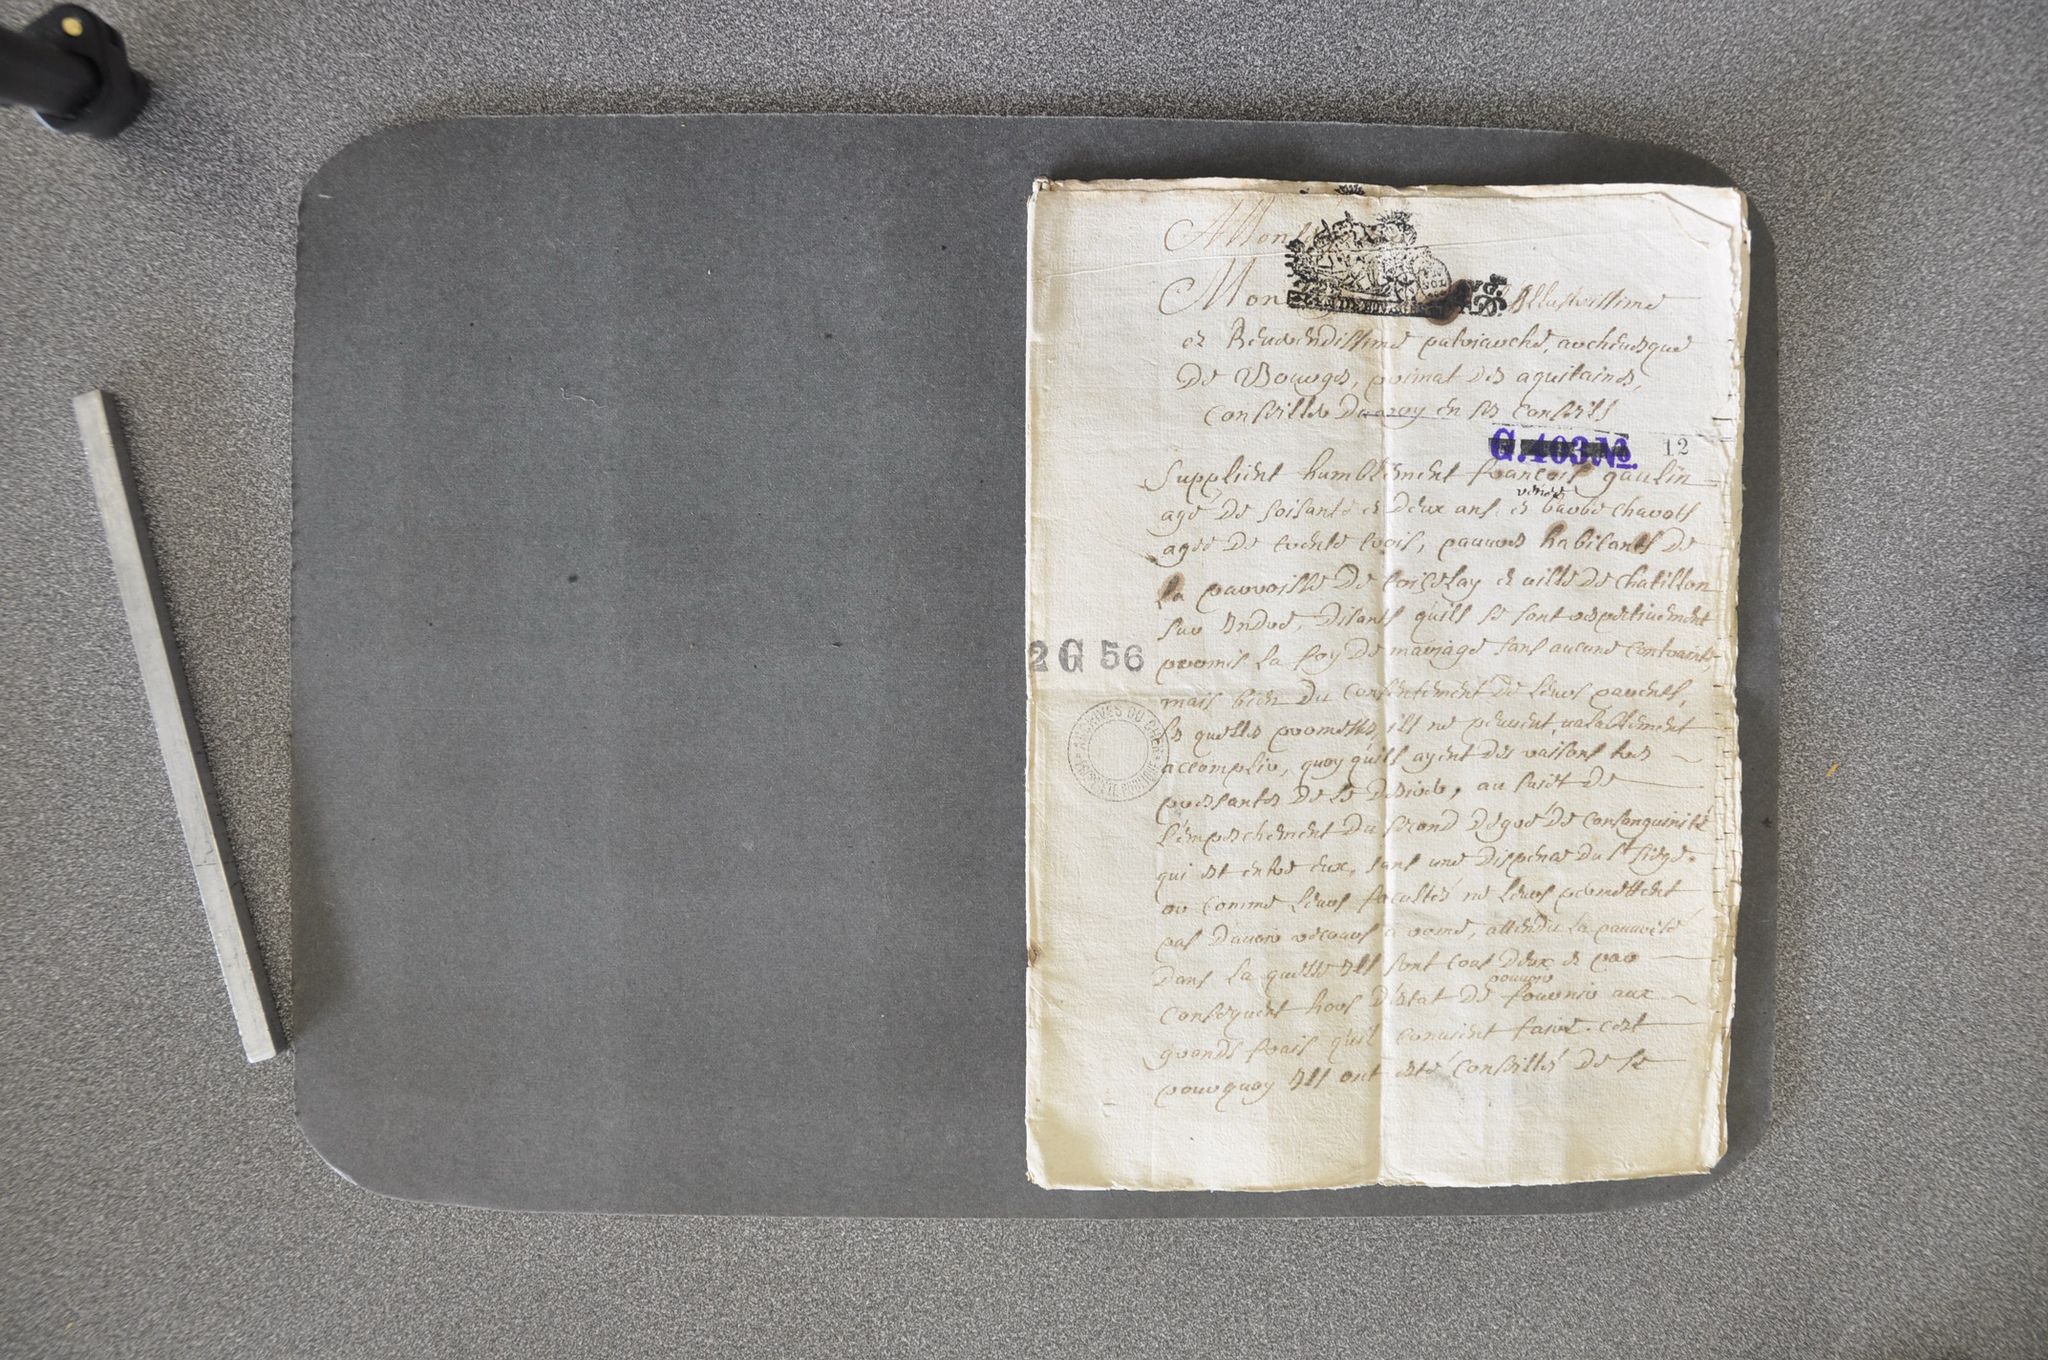 A Monseig
Monseig Illustrissime
et Reverendissime patriarche, archevesque
de Bourges, primat des aquitaines,
Conseiller du roy en ses conseils
G. 403 No. 12
Supplient humblement françois gaulin
agé de soisante et deux ans et barbe chavots
agée de trente trois, pauvres habitants de
la parroisse de toizelay et ville de chatillon
sur Indre, disants qu'ills se sont respectivement
promis la foy de mariage sans aucune contrainte,
mais bien du consentement de leurs parents,
les quelles promesses, ills ne peuvent valablement
accomplir, quoy qu'ills ayent des raisons tres
pressantes de le desirer, au sujet de
l'empeschement du second degré de consanguinité
qui est entre eux, sans une dispense du St siege.
or comme leurs facultés ne leurs permettent
pas d'avoir recours a rome, attendu la pauvreté
dans la quelle ills sont tous deux et par
pouvoir
consequent hors d'estat de fournir aux
grands frais qu'il convient faire. c'est
pourquoy ills ont esté conseillés de se
2 G 56
ARCHIVES DU CHER